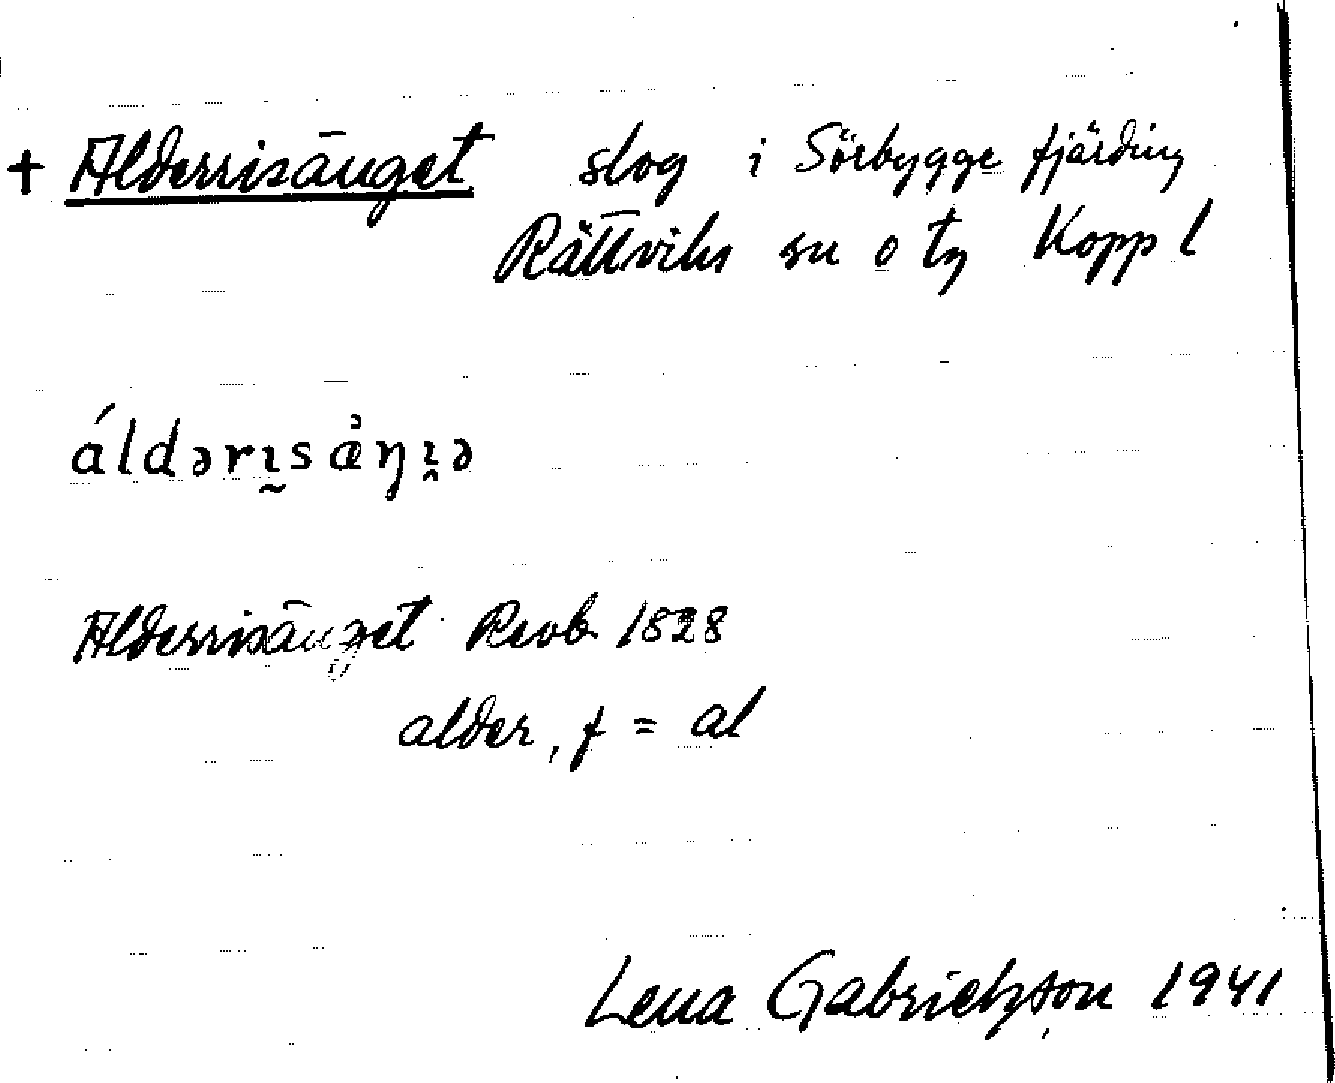 + Alderrisänget slog i Sörbygge fjärding
Rättviks sn o tg Kopp l
áldərı̰sæ̉ŋı̯ə
Alderrisänget Reob 1828
alder, f = al
Lena Gabrielsson 1941